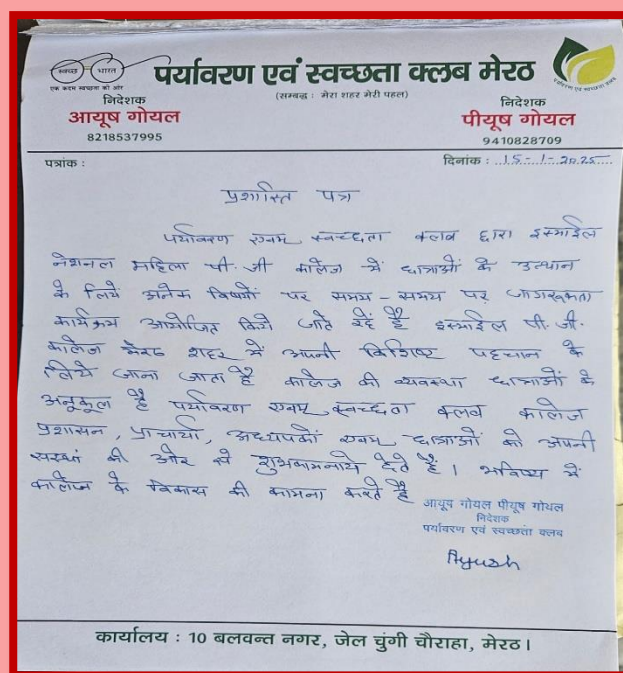 स्वच्छ भारत
एक कदम स्वच्छता की ओर
पर्यावरण एवं स्वच्छता क्लब मेरठ
(सम्बद्ध : मेरा शहर मेरी पहल)
निदेशक
आयूष गोयल
8218537995
निदेशक
पीयूष गोयल
9410828709
पत्रांक :
दिनांक : 15-1-2025
प्रशास्ति पत्र
पर्यावरण एवम् स्वच्छता क्लव द्वारा इस्माईल
नेशनल महिला पी.जी कालेज में छात्राओं के उत्थान
के लिये अनेक विषयों पर समय-समय पर जागरूकता
कार्यक्रम आयोजित किये जाते रहे है इस्माईल पी.जी.
कालेज मेरठ शहर में अपनी विशिष्ट पहचान के
लिये जाना जाता है कालेज की व्यवस्था छात्राओं के
अनुकूल है पर्यावरण एवम् स्वच्छता क्लव कालेज
प्रशासन, प्राचार्या, अध्यपकों एवम् छात्राओं को अपनी
की ओर से शुभकामनाये देते है। भविष्य में
कालेज के विकास की कामना करते है
आयूष गोयल पीयूष गोयल
निदेशक
पर्यावरण एवं स्वच्छता क्लब
Ayush
कार्यालय : 10 बलवन्त नगर, जेल चुंगी चौराहा, मेरठ।